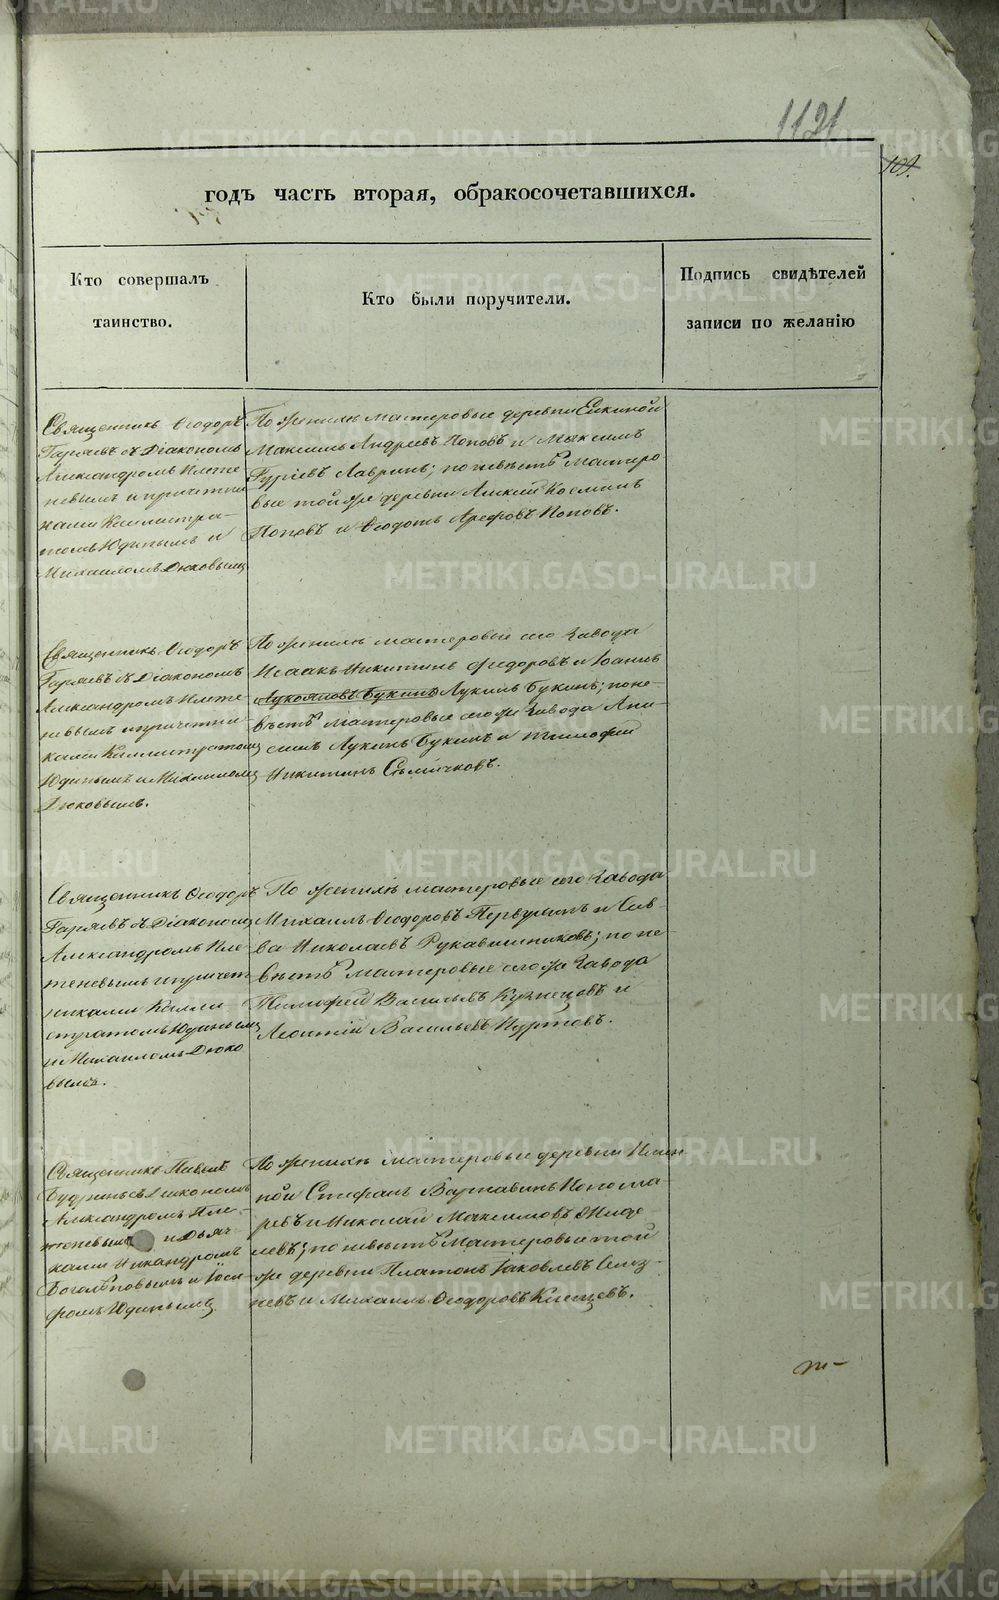 1121
109.
годъ часть вторая, обракосочетавшихся.
Кто совершалъ
таинство.
Кто были поручители.
Подпись свидѣтелей
записи по желанію
Священникъ Ѳеодоръ
Гаряевъ съ Діакономъ
Александромъ Плете
невымъ и причетни
ками Каллистра-
томъ Юдинымъ и
Михаиломъ Дюковымъ
По женихѣ мастеровые деревни
Максимъ Андреевъ Поповъ и Максимъ
Гуріевъ Лавринъ; по невѣстѣ Мастеро
вые той же деревни Алексѣй Косминъ
Поповъ и Ѳеодотъ Арефовъ Поповъ.
Священникъ Ѳеодоръ
Гаряевъ съ Діакономъ
Александромъ Плете
невымъ и причетни
ками Каллистратомъ
Юдинымъ и Михаиломъ
Дюковымъ.
По женихѣ мастеровые сего Завода
Исаакъ Никитинъ Ѳедоровъ и Іоаннъ
Лукояновъ Букинъ Лукинъ Букинъ; по не-
вѣстѣ мастеровые сего же Завода Ани-
симъ Лукинъ Букинъ и Тимофей
Никитинъ Сѣмячковъ.
Священникъ Ѳеодоръ
Гаряевъ съ Діакономъ
Александромъ Пле
теневымъ и причет
никами Калли
стратомъ Юдинымъ
и Михаиломъ Дюко
вымъ.
По женихѣ мастеровые сего Завода
Михаилъ Ѳеодоровъ Первушинъ и Сав-
ва Николаевъ Рукавишниковъ; по не-
вѣстѣ Мастеровые сего же Завода
Тимофей Васильевъ Кузнецовъ и
Леонтій Васильевъ Куртовъ.
Священникъ Павелъ
Будринъ съ Діакономъ
Александромъ Пле-
теневымъ и Дьяч
ками Никандромъ
Боголѣповымъ и Іоси
фомъ Юдинымъ
По женихѣ мастеровые деревни
ной Стефанъ Варнавинъ Понома
ревъ и Николай Максимовъ
левъ; по невѣстѣ Мастеровые той
же деревни Платонъ Іаковлевъ Селез-
невъ и Михаилъ Ѳеодоровъ
METRIKI.GASO-URAL.RU